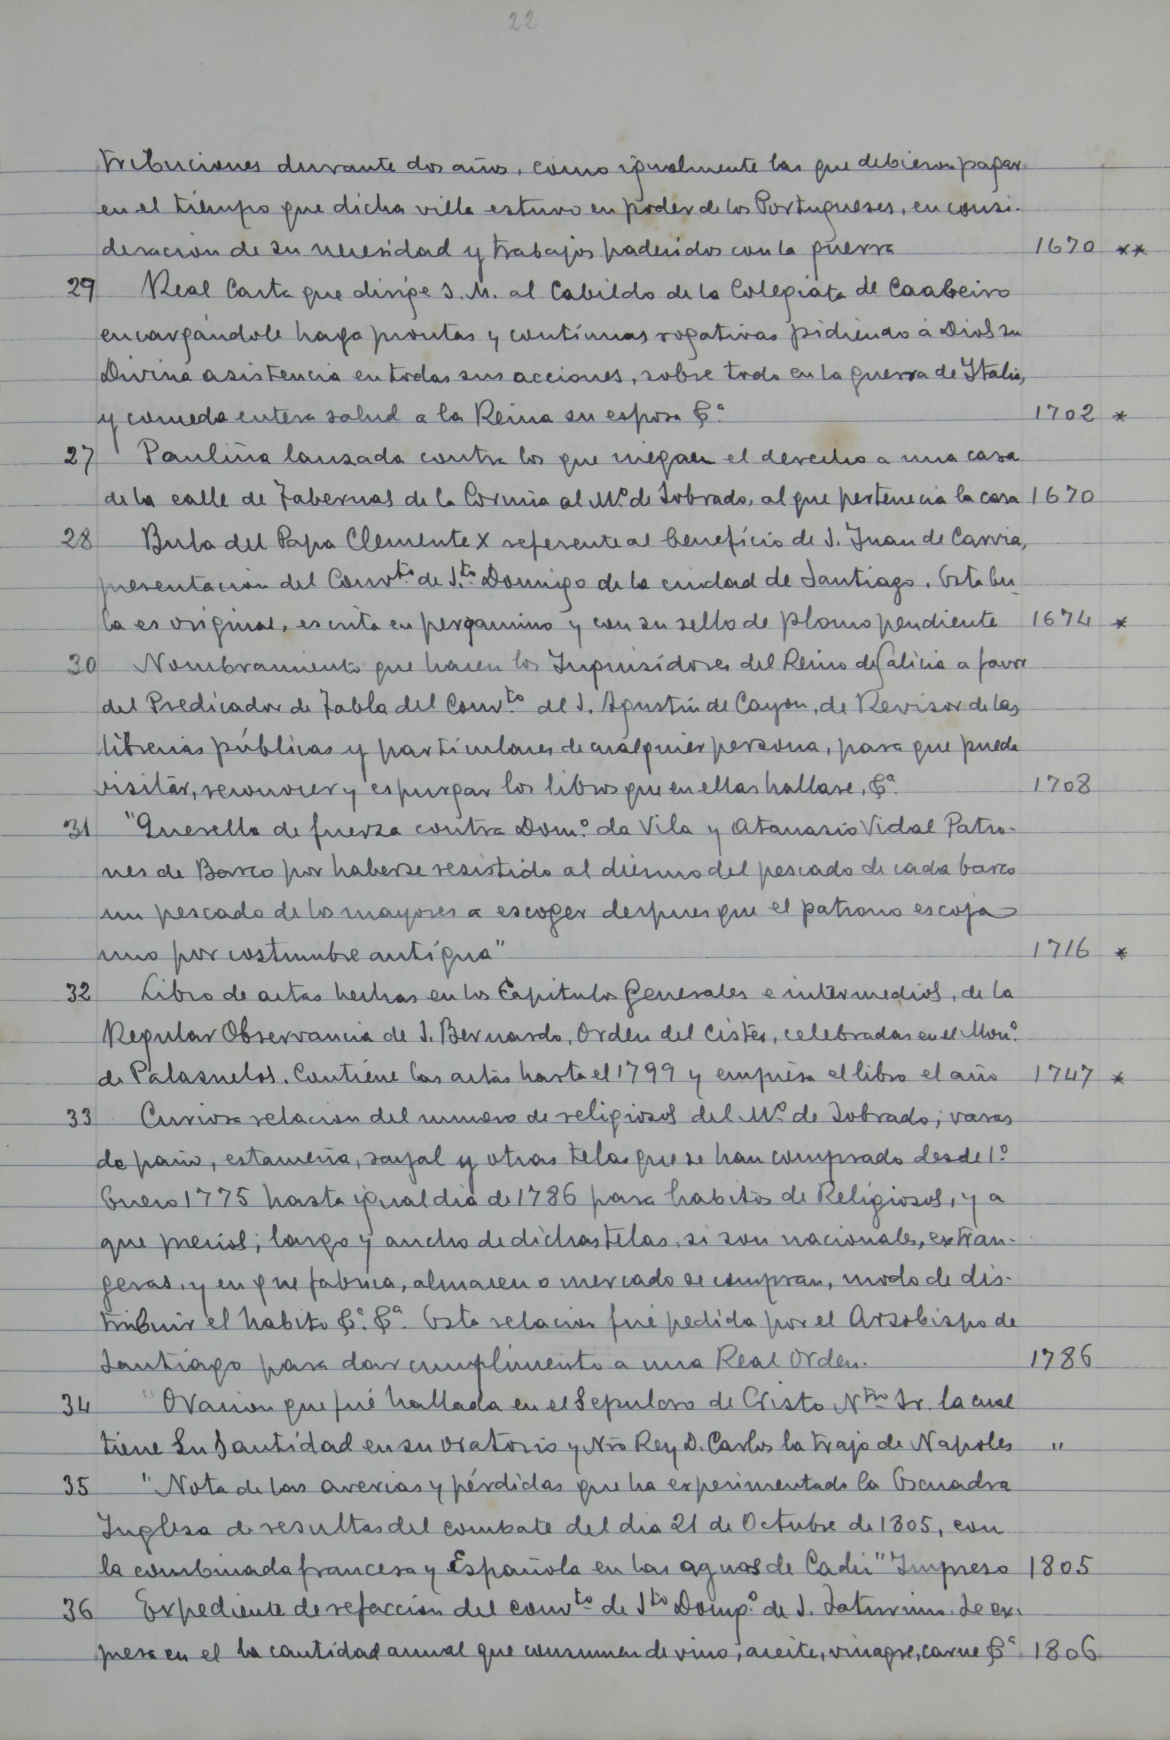 22
tribuciones durante dos años, como igualmente las que debieron pagar
en el tiempo que dicha villa estuvo en poder de los Portugueses, en consi-
deracion de su necesidad y trabajos padecidos con la guerra 1670 **
29 Real Carta que dirige S. M. al Cabildo de la Colegiata de Caabeiro
encargándole haga prontas y contínuas rogativas pidiendo á Dios su
Divina asistencia en todas sus acciones, sobre todo en la guerra de Italia,
y conceda entera salud a la Reina su esposa &ª 1702 *
27 Pauliña lanzada contra los que niegan el derecho a una casa
de la calle de Tabernas de la Coruña al Mº de Sobrado, al que pertenecia la casa 1670
28 Bula del Papa Clemente X referente al beneficio de S. Juan de Carvia,
presentacion del Convto de Sto Domingo de la ciudad de Santiago. Esta bu-
la es original, escrita en pergamino y con su sello de plomo pendiente 1674 *
30 Nombramiento que hacen los Inquisidores del Reino de Galicia a favor
del Predicador de Tabla del Convto de S. Agustín de Cayon, de Revisor de las
librerias públicas y particulares de cualquier persona, para que pueda
visitar, reconocer y espurgar los libros que en ellas hallase, &ª 1708
31 "Querella de fuerza contra Domº da Vila y Atanasio Vidal Patro-
nes de Barco por haberse resistido al diezmo del pescado de cada barco
un pescado de los mayores a escoger despues que el patrono escoja
uno por costumbre antígua" 1716 *
32 Libro de actas hechas en los Capitulos Generales e intermedios, de la
Regular Observancia de S. Bernardo, Orden del Cister, celebradas en el Monº
de Palazuelos. Contiene las actas hasta el 1799 y empieza el libro el año 1747 *
33 Curiosa relacion del numero de religiosos del Mº de Sobrado; varas
de paño, estameña, sayal y otras telas que se han comprado desde 1º
Enero 1775 hasta igual dia de 1786 para habitos de Religiosos, y a
que precios; largo y ancho de dichas telas, si son nacionales, extran-
geras, y en que fabrica, almacen o mercado se compran, modo de dis-
tribuir el habito &ª &ª Esta relacion fué pedida por el Arzobispo de
Santiago para dar cumplimento a una Real Orden. 1786
34 "Oracion que fué hallada en el Sepulcro de Cristo Ntro Sr. la cual
tiene Su Santidad en su oratorio y Nro Rey D. Carlos la trajo de Napoles "
35 "Nota de las averias y pérdidas que ha experimentado la Escuadra
Inglesa de resultas del combate del dia 21 de Octubre de 1805, con
la combinada francesa y Española en las aguas de Cadiz" Impreso 1805
36 Expediente de refaccion del convto de Sto Domgº de S. Saturnino. Se ex-
presa en el la cantidad anual que consumen de vino, aceite, vinagre, carne &ª 1806